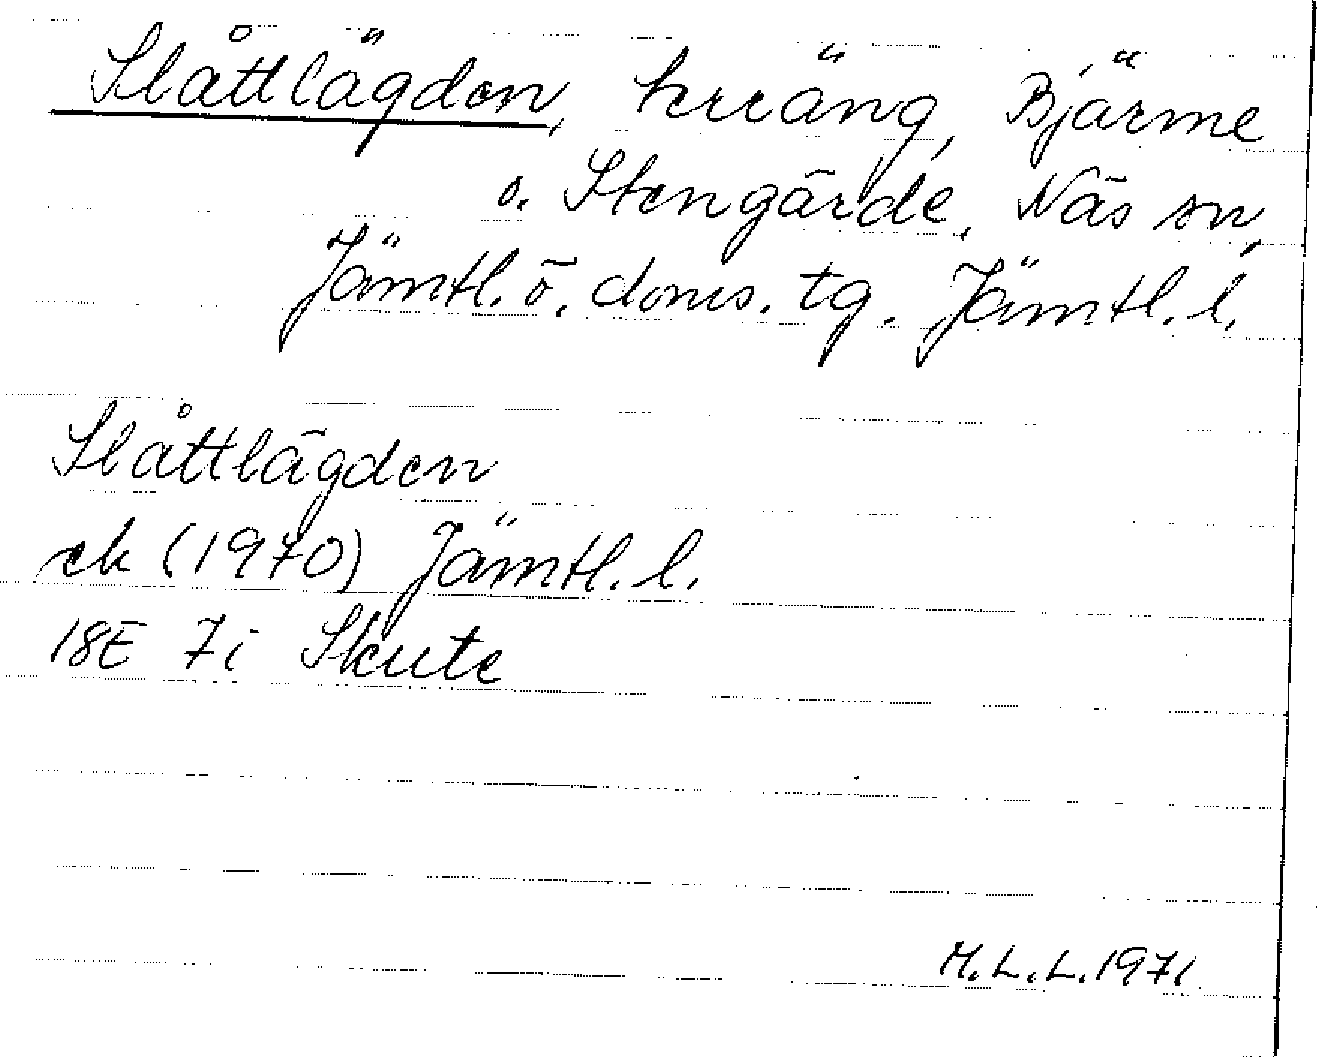 Slåttlägden, kruäng, Bjärme
o. Stengärde, Näs sn,
Jämtl. ö. doms. tg. Jämtl. l.
Slåttlägden
ek (1970) Jämtl. l.
18E 7i Skute
M.L.L. 1971